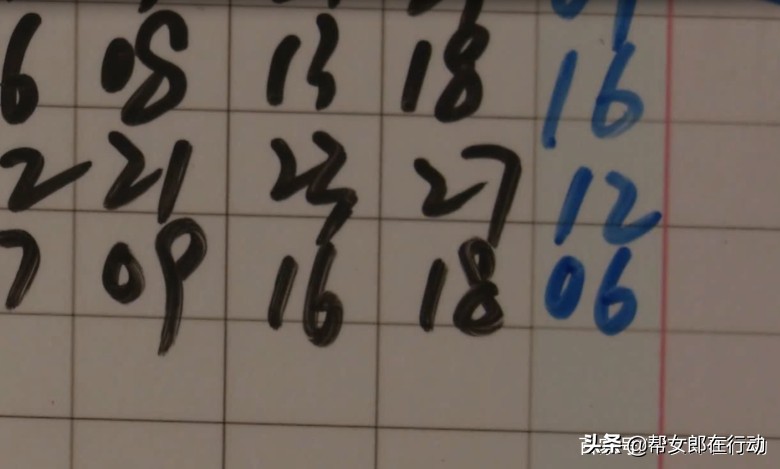 6 08 13 18 16
2 21 23 27 12
7 09 16 18 06
头条@帮女郎在行动